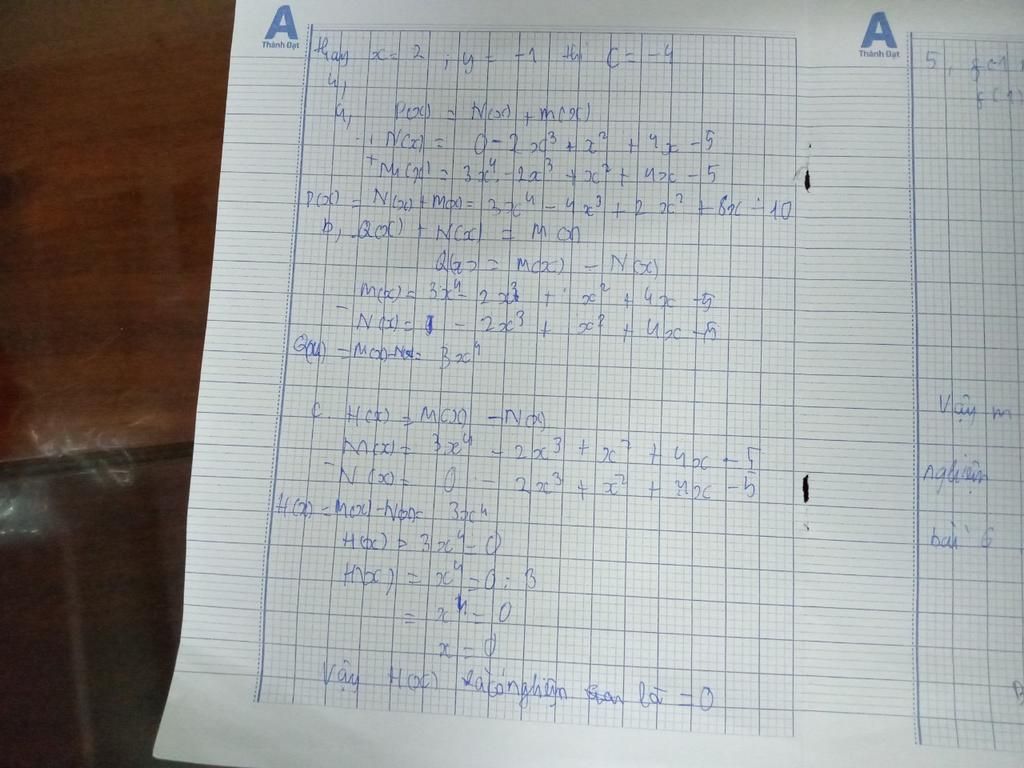 A
Thành Đạt
Hay x = 2 ; y = -1 thì C = -4
4,
a, P(x) = N(x) + M(x)
N(x) = 0 - 2x³ + x² + 4x - 5
+ M(x) = 3x⁴ - 2x³ + x² + 4x - 5
P(x) = N(x) + M(x) = 3x⁴ - 4x³ + 2x² + 8x - 10
b, Q(x) + N(x) = M(x)
Q(x) = M(x) - N(x)
M(x) = 3x⁴ - 2x³ + x² + 4x - 5
- N(x) = - 2x³ + x² + 4x - 5
Q(x) = M(x) - N(x) = 3x⁴
c. H(x) = M(x) - N(x)
M(x) = 3x⁴ - 2x³ + x² + 4x - 5
- N(x) = 0 - 2x³ + x² + 4x - 5
H(x) = M(x) - N(x) = 3x⁴
H(x) = 3x⁴ = 0
H(x) = x⁴ = 0 : 3
= x⁴ = 0
x = 0
Vậy H(x) có nghiệm là = 0
A
Thành Đạt
5,
Vậy m
nghiệm
bài 6